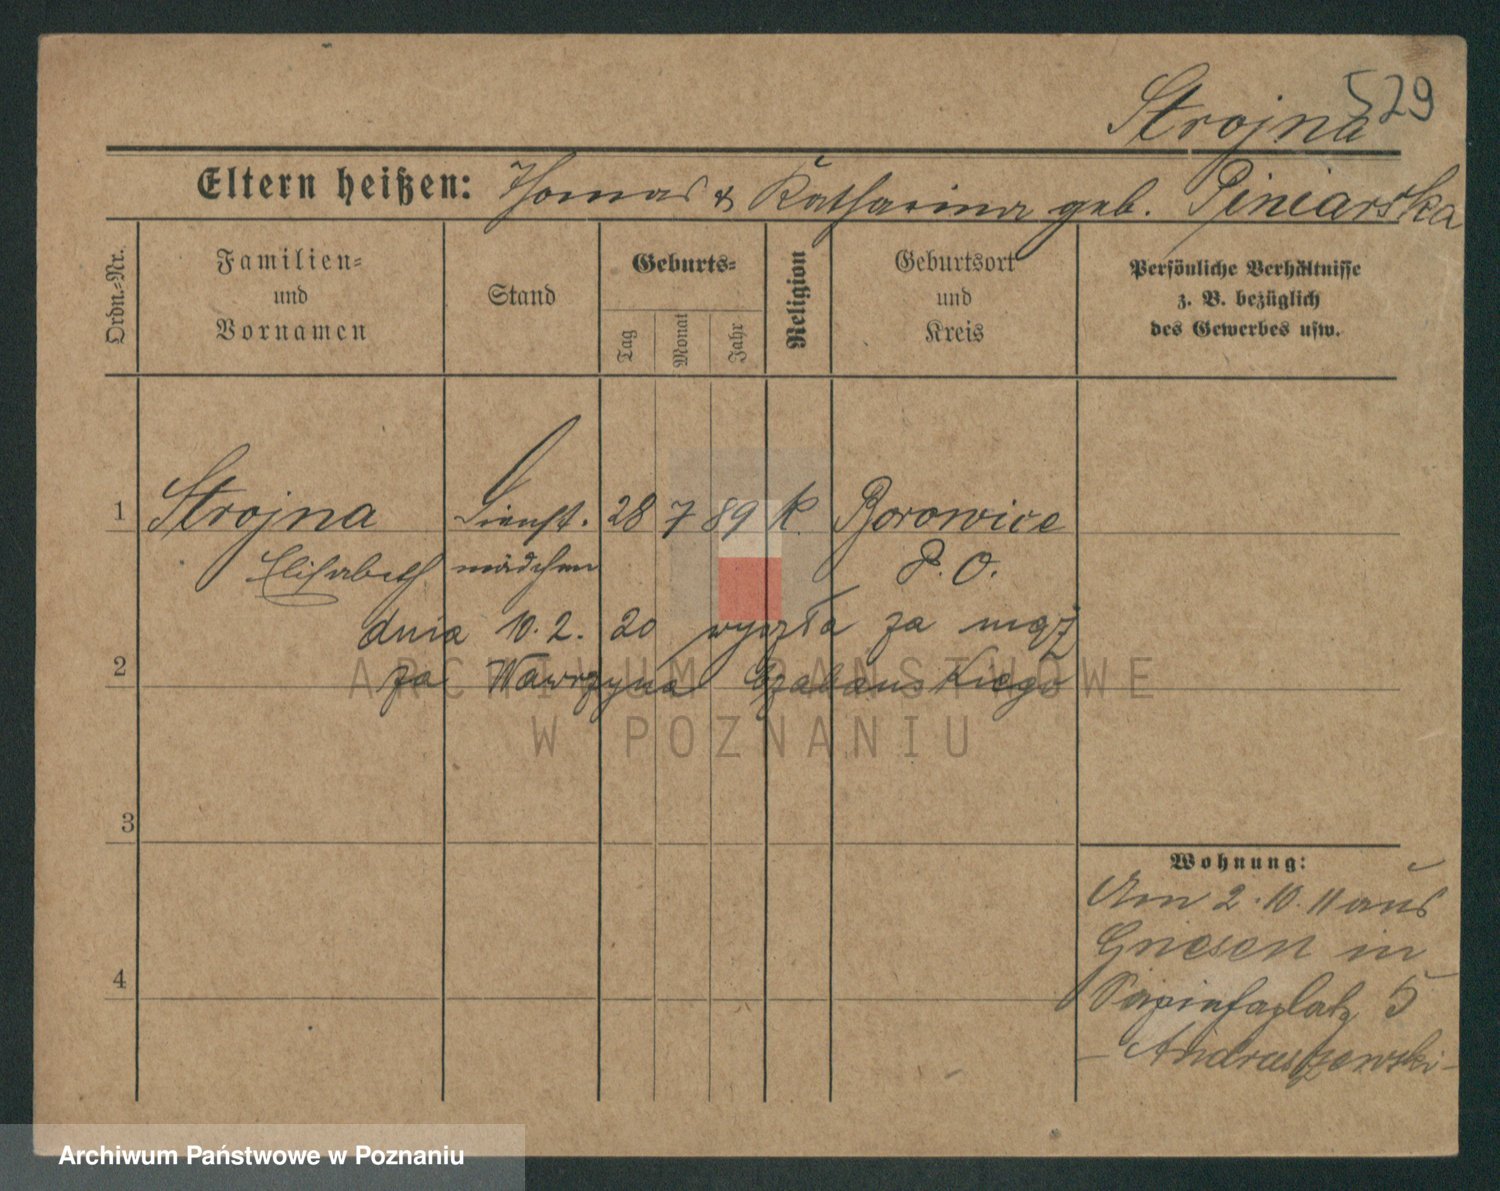 529
Strojna
Eltern heißen: Thomas & Katharina geb. Piniarska
Ordn.-Nr.
Familien-
und
Vornamen
Stand
Geburts-
Tag
Monat
Jahr
Religion
Geburtsort
und
Kreis
Persönliche Verhältnisse
z. B. bezüglich
des Gewerbes usw.
1 Strojna Dienst. 28 7 89 k. Borowice
Elisabeth mädchen P. O.
dnia 10. 2. 20 wyszła za mąż
2
za Wawrzyna Czabańskiego
3
4
Wohnung:
Am 2. 10. 11 aus
Gnesen in
Sapiehaplatz 5
- Andruszewski -
ARCHIWUM PAŃSTWOWE
W POZNANIU
Archiwum Państwowe w Poznaniu